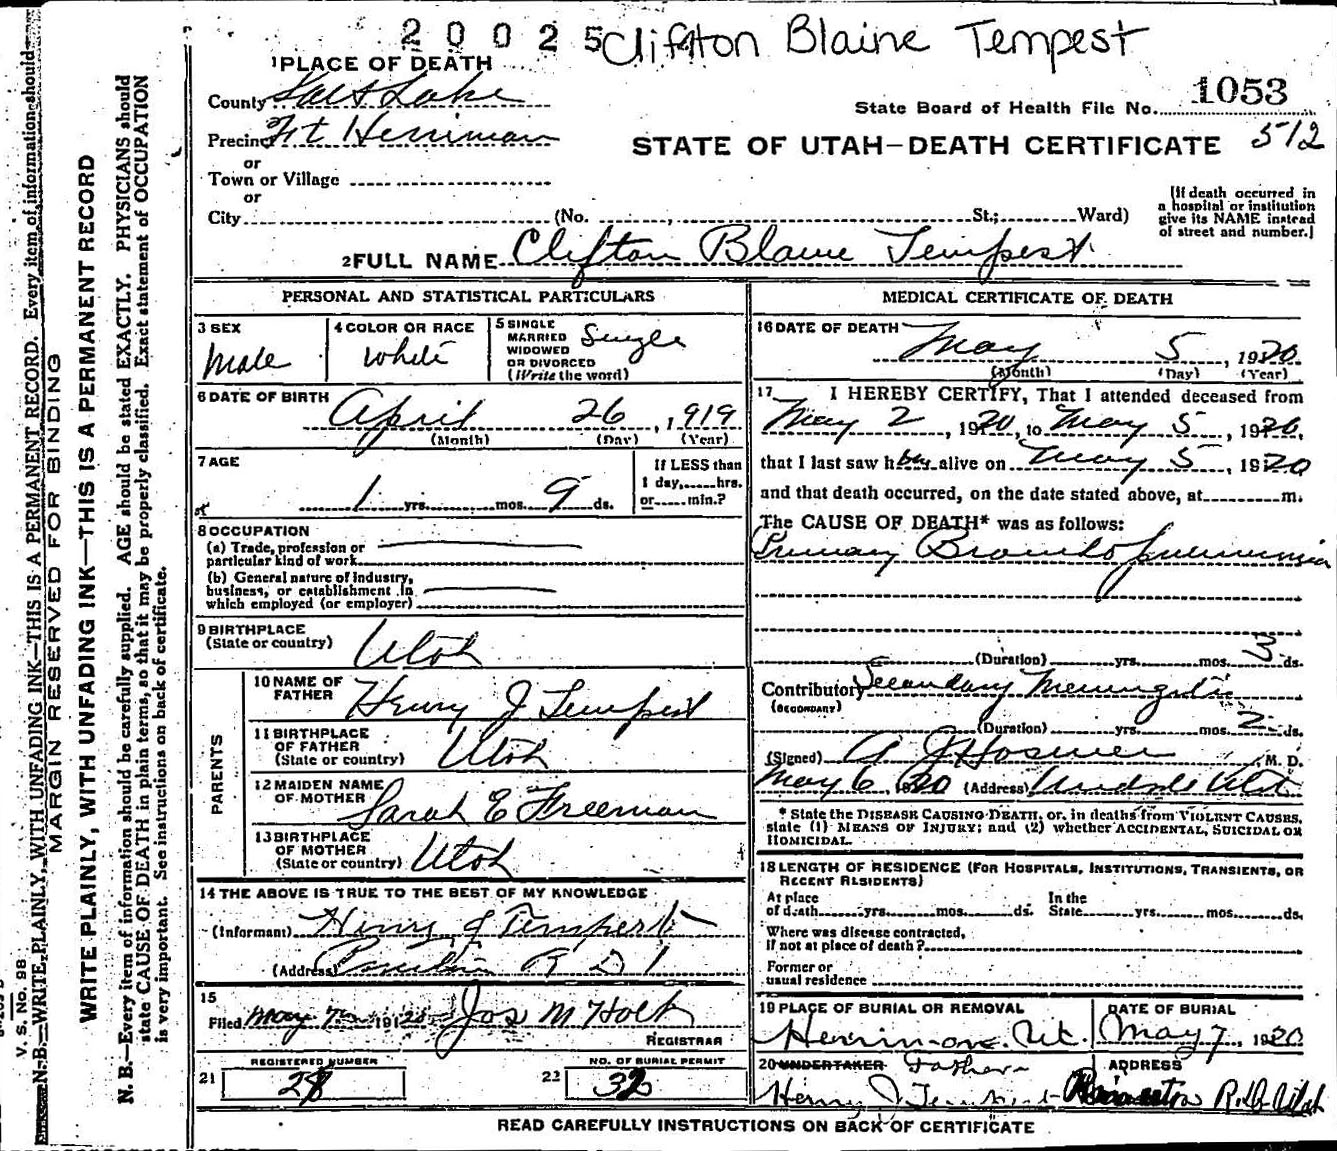 20025 Clifton Blaine Tempest
1 PLACE OF DEATH
County Salt Lake
State Board of Health File No. 1053
Precinct Ft Herriman
STATE OF UTAH—DEATH CERTIFICATE 512
or
Town or Village
or
City (No. St.; Ward)
(If death occurred in
a hospital or institution
give its NAME instead
of street and number.)
2 FULL NAME Clifton Blaine Tempest
PERSONAL AND STATISTICAL PARTICULARS
3 SEX
Male
4 COLOR OR RACE
White
5 SINGLE
MARRIED
WIDOWED
OR DIVORCED
(Write the word)
Single
6 DATE OF BIRTH
April 26, 1919
(Month) (Day) (Year)
7 AGE
1 yrs. mos. 9 ds.
If LESS than
1 day, hrs.
or min.?
8 OCCUPATION
(a) Trade, profession or
particular kind of work
(b) General nature of industry,
business, or establishment in
which employed (or employer)
9 BIRTHPLACE
(State or country) Utah
PARENTS
10 NAME OF
FATHER Henry J Tempest
11 BIRTHPLACE
OF FATHER
(State or country) Utah
12 MAIDEN NAME
OF MOTHER Sarah E Freeman
13 BIRTHPLACE
OF MOTHER
(State or country) Utah
14 THE ABOVE IS TRUE TO THE BEST OF MY KNOWLEDGE
(Informant) Henry J Tempest
(Address) R D 1
15
Filed May 7 1920 Jos M Holt
REGISTRAR
REGISTERED NUMBER
21 28
NO. OF BURIAL PERMIT
22 32
MEDICAL CERTIFICATE OF DEATH
16 DATE OF DEATH
May 5, 1920
(Month) (Day) (Year)
17 I HEREBY CERTIFY, That I attended deceased from
May 2, 1920, to May 5, 1920,
that I last saw him alive on May 5, 1920
and that death occurred, on the date stated above, at m.
The CAUSE OF DEATH* was as follows:
Primary Broncho pneumonia
(Duration) yrs. mos. 3 ds.
Contributory Secondary Meningitis
(SECONDARY)
(Duration) yrs. mos. 2 ds.
(Signed) A J Hosmer M. D.
May 6 1920 (Address) Midvale Utah
* State the DISEASE CAUSING DEATH, or, in deaths from VIOLENT CAUSES,
state (1) MEANS OF INJURY; and (2) whether ACCIDENTAL, SUICIDAL OR
HOMICIDAL.
18 LENGTH OF RESIDENCE (FOR HOSPITALS, INSTITUTIONS, TRANSIENTS, OR
RECENT RESIDENTS)
At place
of death yrs. mos. ds.
In the
State yrs. mos. ds.
Where was disease contracted,
if not at place of death?
Former or
usual residence
19 PLACE OF BURIAL OR REMOVAL
Herriman Ut.
DATE OF BURIAL
May 7, 1920
20 UNDERTAKER Father
Henry J Tempest
ADDRESS
Riverton R.D. Utah
READ CAREFULLY INSTRUCTIONS ON BACK OF CERTIFICATE
V. S. No. 98
N. B.—WRITE PLAINLY, WITH UNFADING INK—THIS IS A PERMANENT RECORD. Every item of information should
MARGIN RESERVED FOR BINDING
WRITE PLAINLY, WITH UNFADING INK—THIS IS A PERMANENT RECORD
N. B.—Every item of information should be carefully supplied. AGE should be stated EXACTLY. PHYSICIANS should
state CAUSE OF DEATH in plain terms, so that it may be properly classified. Exact statement of OCCUPATION
is very important. See instructions on back of certificate.